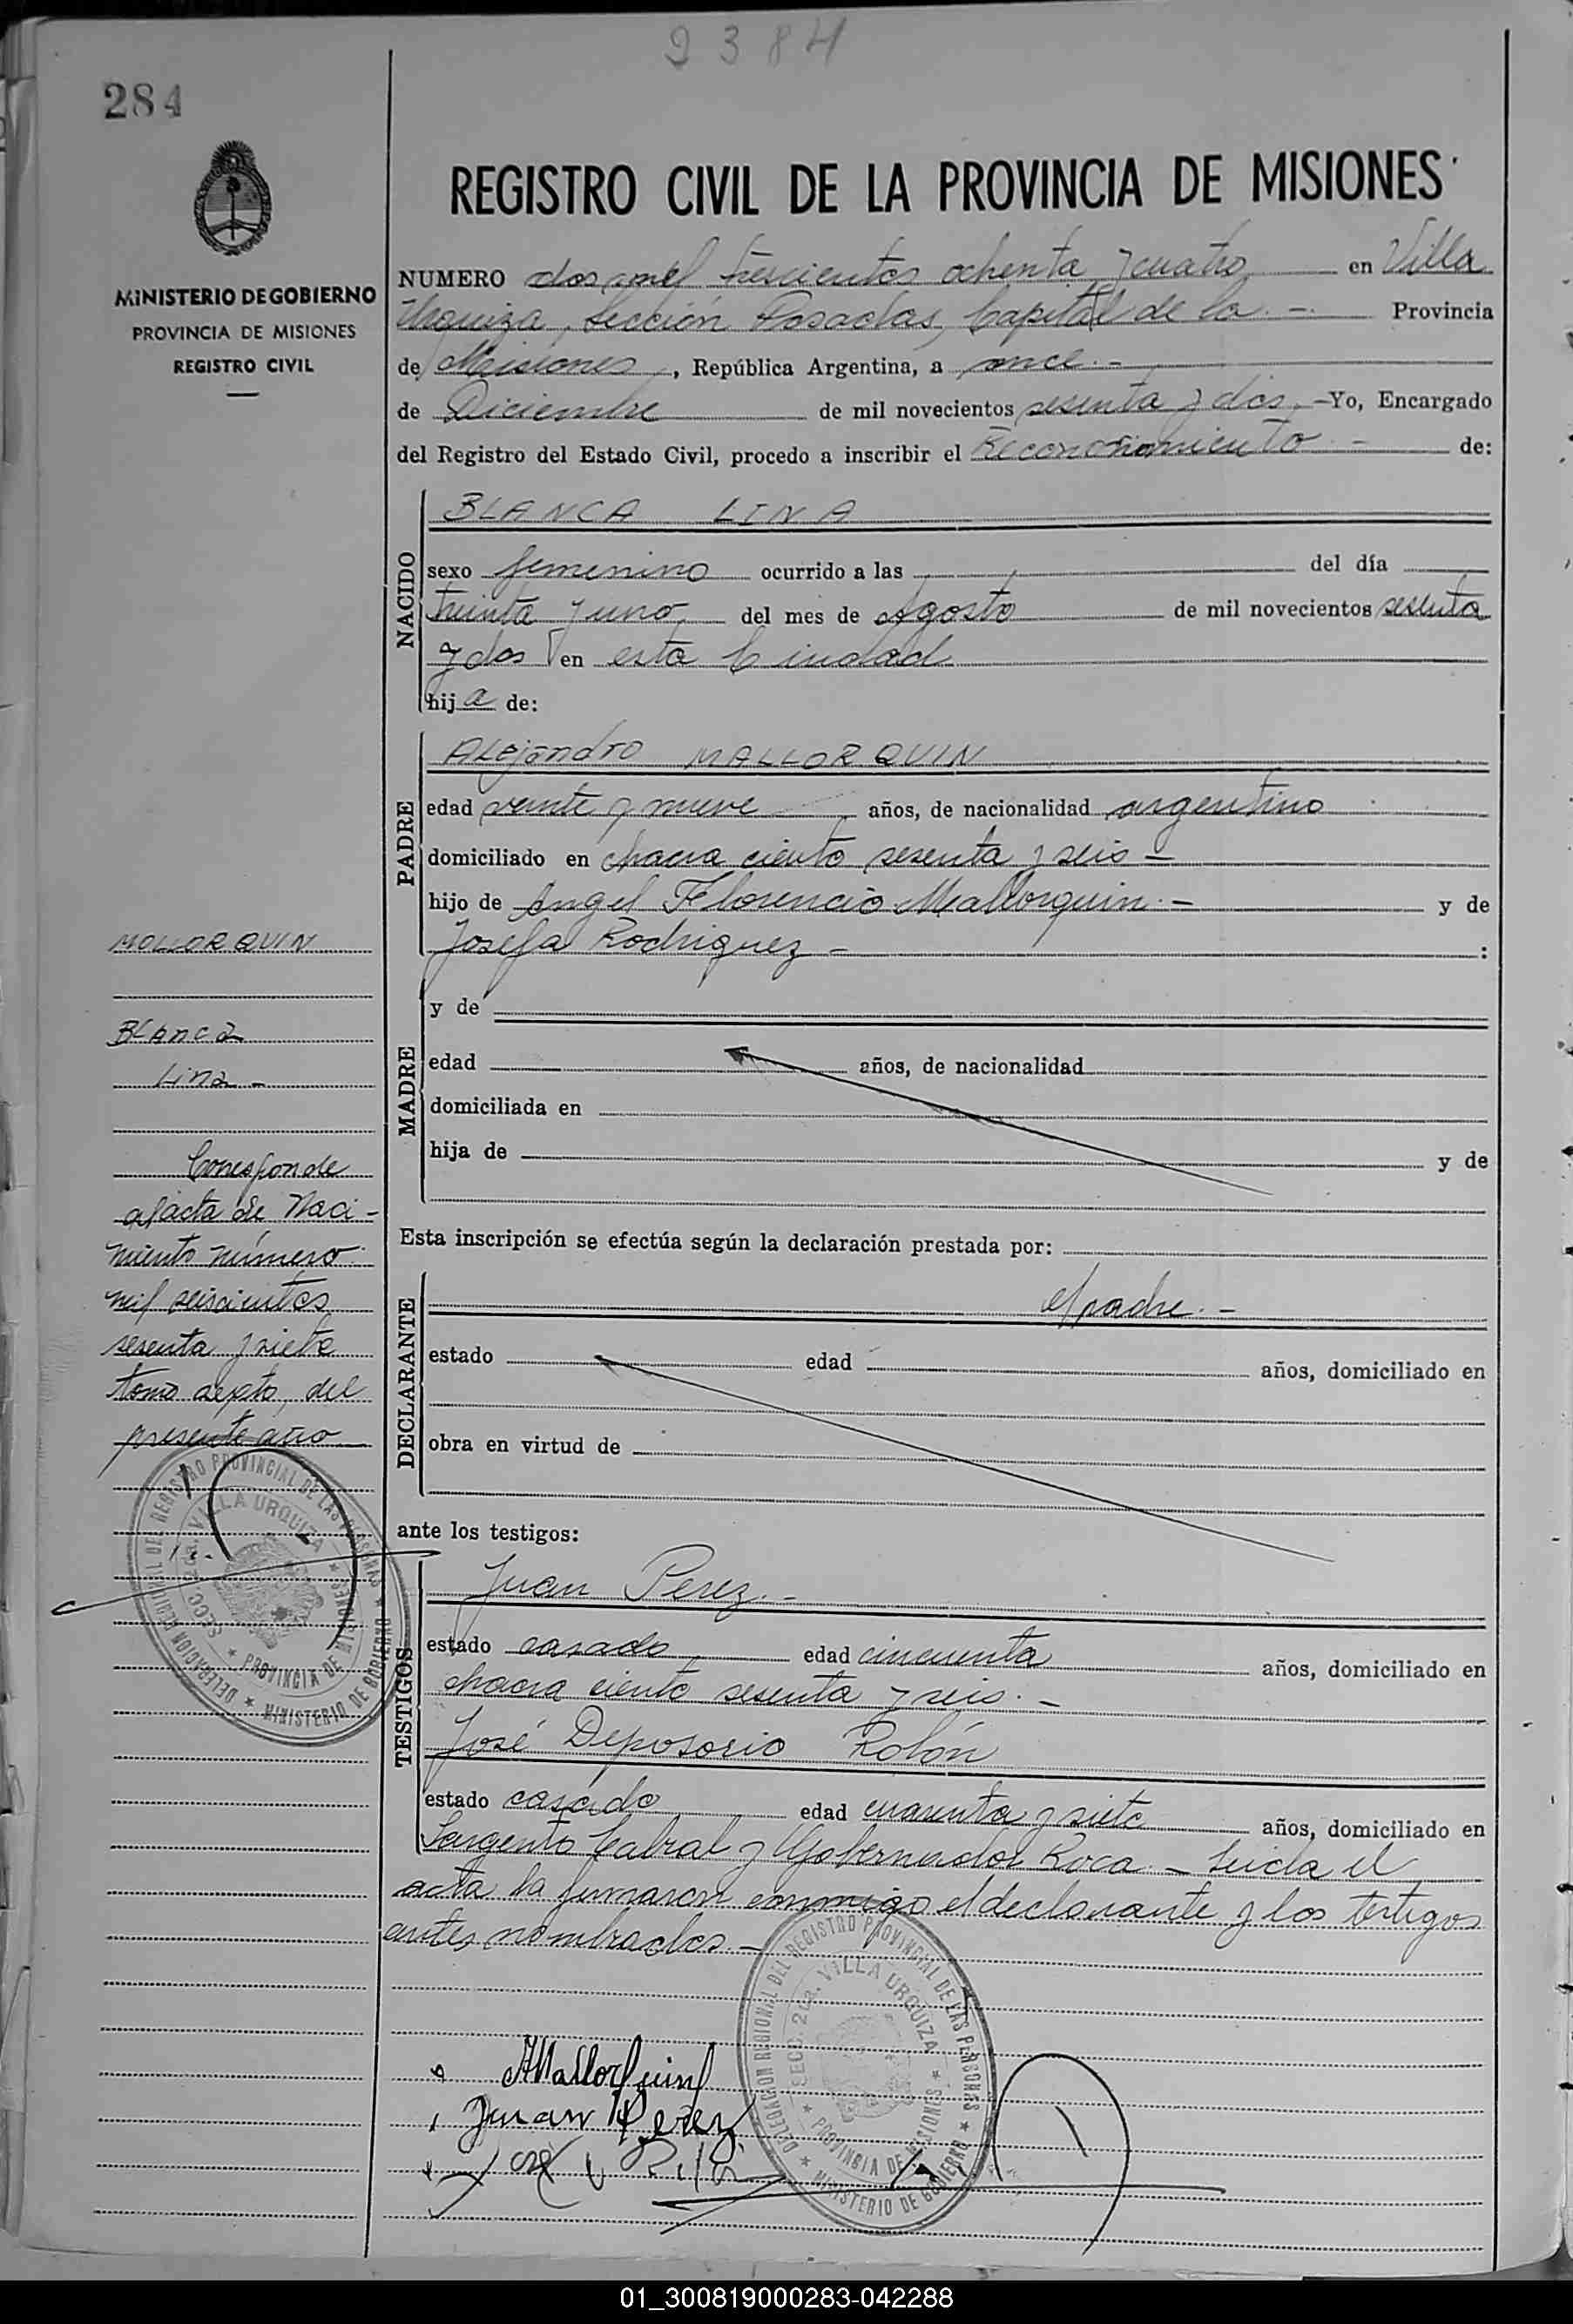 2384
284
REGISTRO CIVIL DE LA PROVINCIA DE MISIONES
MINISTERIO DE GOBIERNO
PROVINCIA DE MISIONES
REGISTRO CIVIL
NUMERO dos mil trescientos ochenta y cuatro en Villa
Urquiza, Sección Posadas, Capital de la.- Provincia
de Misiones, República Argentina, a once.-
de Diciembre de mil novecientos sesenta y dos.-Yo, Encargado
del Registro del Estado Civil, procedo a inscribir el Reconocimiento - de:
NACIDO
BLANCA LINA
sexo femenino ocurrido a las del día
treinta y uno del mes de Agosto de mil novecientos sesenta
y dos en esta Ciudad
hija de:
PADRE
Alejandro MALLORQUIN
edad veinte y nueve años, de nacionalidad argentino
domiciliado en chacra ciento sesenta y seis -
hijo de Angel Florencio Mallorquin.- y de
Josefa Rodriguez - :
MADRE
y de
edad años, de nacionalidad
domiciliada en
hija de y de
Esta inscripción se efectúa según la declaración prestada por:
DECLARANTE
el padre.-
estado edad años, domiciliado en
obra en virtud de
ante los testigos:
TESTIGOS
Juan Perez.-
estado casado edad cincuenta años, domiciliado en
chacra ciento sesenta y seis.-
José Deposorio Rolón
estado casado edad cuarenta y siete años, domiciliado en
Sargento Cabral y Gobernador Roca.- Leida el
acta la firmaron conmigo el declarante y los testigos
antes nombrados.-
MOLLORQUIN
Blanca
Lina -
Corresponde
al acta de Naci-
miento número
mil seiscientos
sesenta y siete
tomo sexto, del
presente año
DELEGACION REGIONAL DEL REGISTRO PROVINCIAL DE LAS PERSONAS * MINISTERIO DE GOBIERNO *
SECC. 2da. VILLA URQUIZA * PROVINCIA DE MISIONES *
AMallorquin
Juan Perez
DELEGACION REGIONAL DEL REGISTRO PROVINCIAL DE LAS PERSONAS * MINISTERIO DE GOBIERNO *
SECC. 2da. VILLA URQUIZA * PROVINCIA DE MISIONES *
01_300819000283-042288